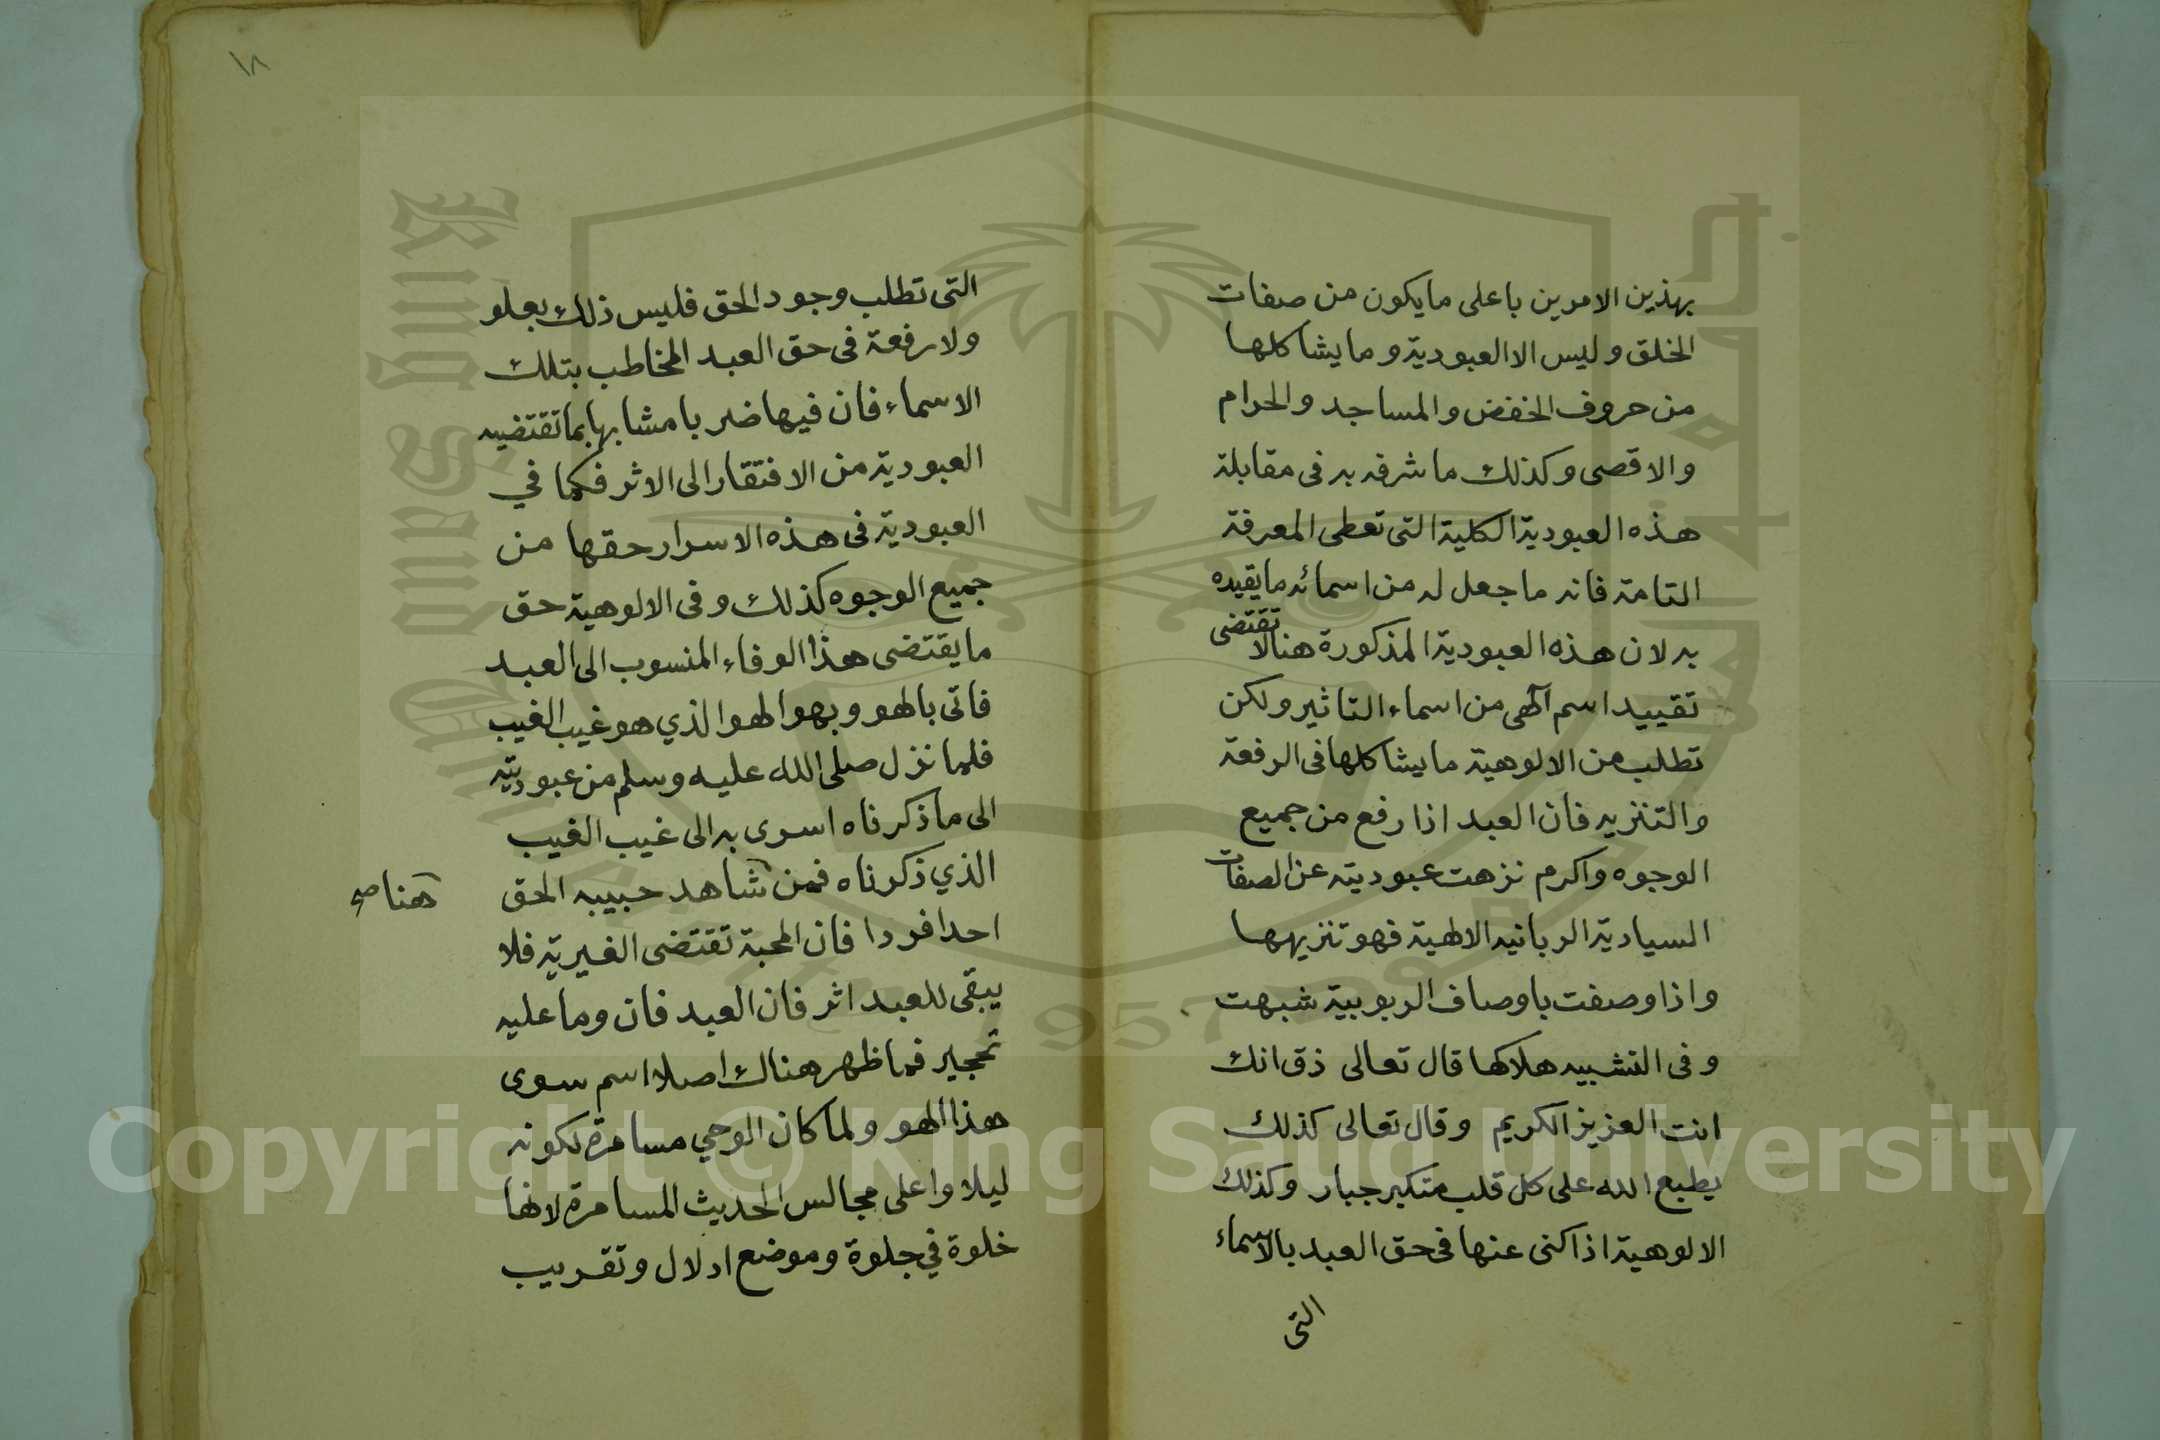 بهذين الامرين باعلى ما يكون من صفات
الخلق وليس الا العبودية وما يشاكلها
من حروف الخفض والمساجد والحرام
والاقصى وكذلك ما شرفه به فى مقابلة
هذه العبودية الكلية التى تعطى المعرفة
التامة فانه ما جعل له من اسمائه ما يقيده
به لان هذه العبودية المذكورة هنا لا تقتضى
تقييد اسم آلهى من اسماء التاثير ولكن
تطلب من الالوهية ما يشاكلها فى الرفعة
والتنزيه فان العبد اذا رفع من جميع
الوجوه واكرم نزهت عبوديته عن الصفات
السيادية الربانيه الالهية فهو تنزيهها
واذا وصفت باوصاف الربوبية شبهت
وفى التشبيه هلاكها قال تعالى ذق انك
انت العزيز الكريم وقال تعالى كذلك
يطبع الله على كل قلب متكبر جبار وكذلك
الالوهية اذا كنى عنها فى حق العبد بالاسماء
التى
١٨
التى تطلب وجود الحق فليس ذلك بعلو
ولا رفعة فى حق العبد المخاطب بتلك
الاسماء فان فيها ضربا مشابها بما تقتضيه
العبودية من الافتقار الى الاثر فكما في
العبودية فى هذه الاسرار حقها من
جميع الوجوه كذلك وفى الالوهية حق
ما يقتضى هذا الوفاء المنسوب الى العبد
فاتى بالهو وبهو الهو الذي هو غيب الغيب
فلما نزل صلى الله عليه وسلم من عبوديته
الى ما ذكرناه اسرى به الى غيب الغيب
الذي ذكرناه فمن شاهد حبيبه الحق
هنا صح
احدا فردا فان المحبة تقتضى الغيرية فلا
يبقى للعبد اثر فان العبد فان وما عليه
تحجير فما ظهر هناك اصلا اسم سوى
هذا الهو ولما كان الوحي مسامرة لكونه
ليلا واعلى مجالس الحديث المسامرة لانها
خلوة في جلوة وموضع ادلال وتقريب
Copyright © King Saud University
King Saud University
1957